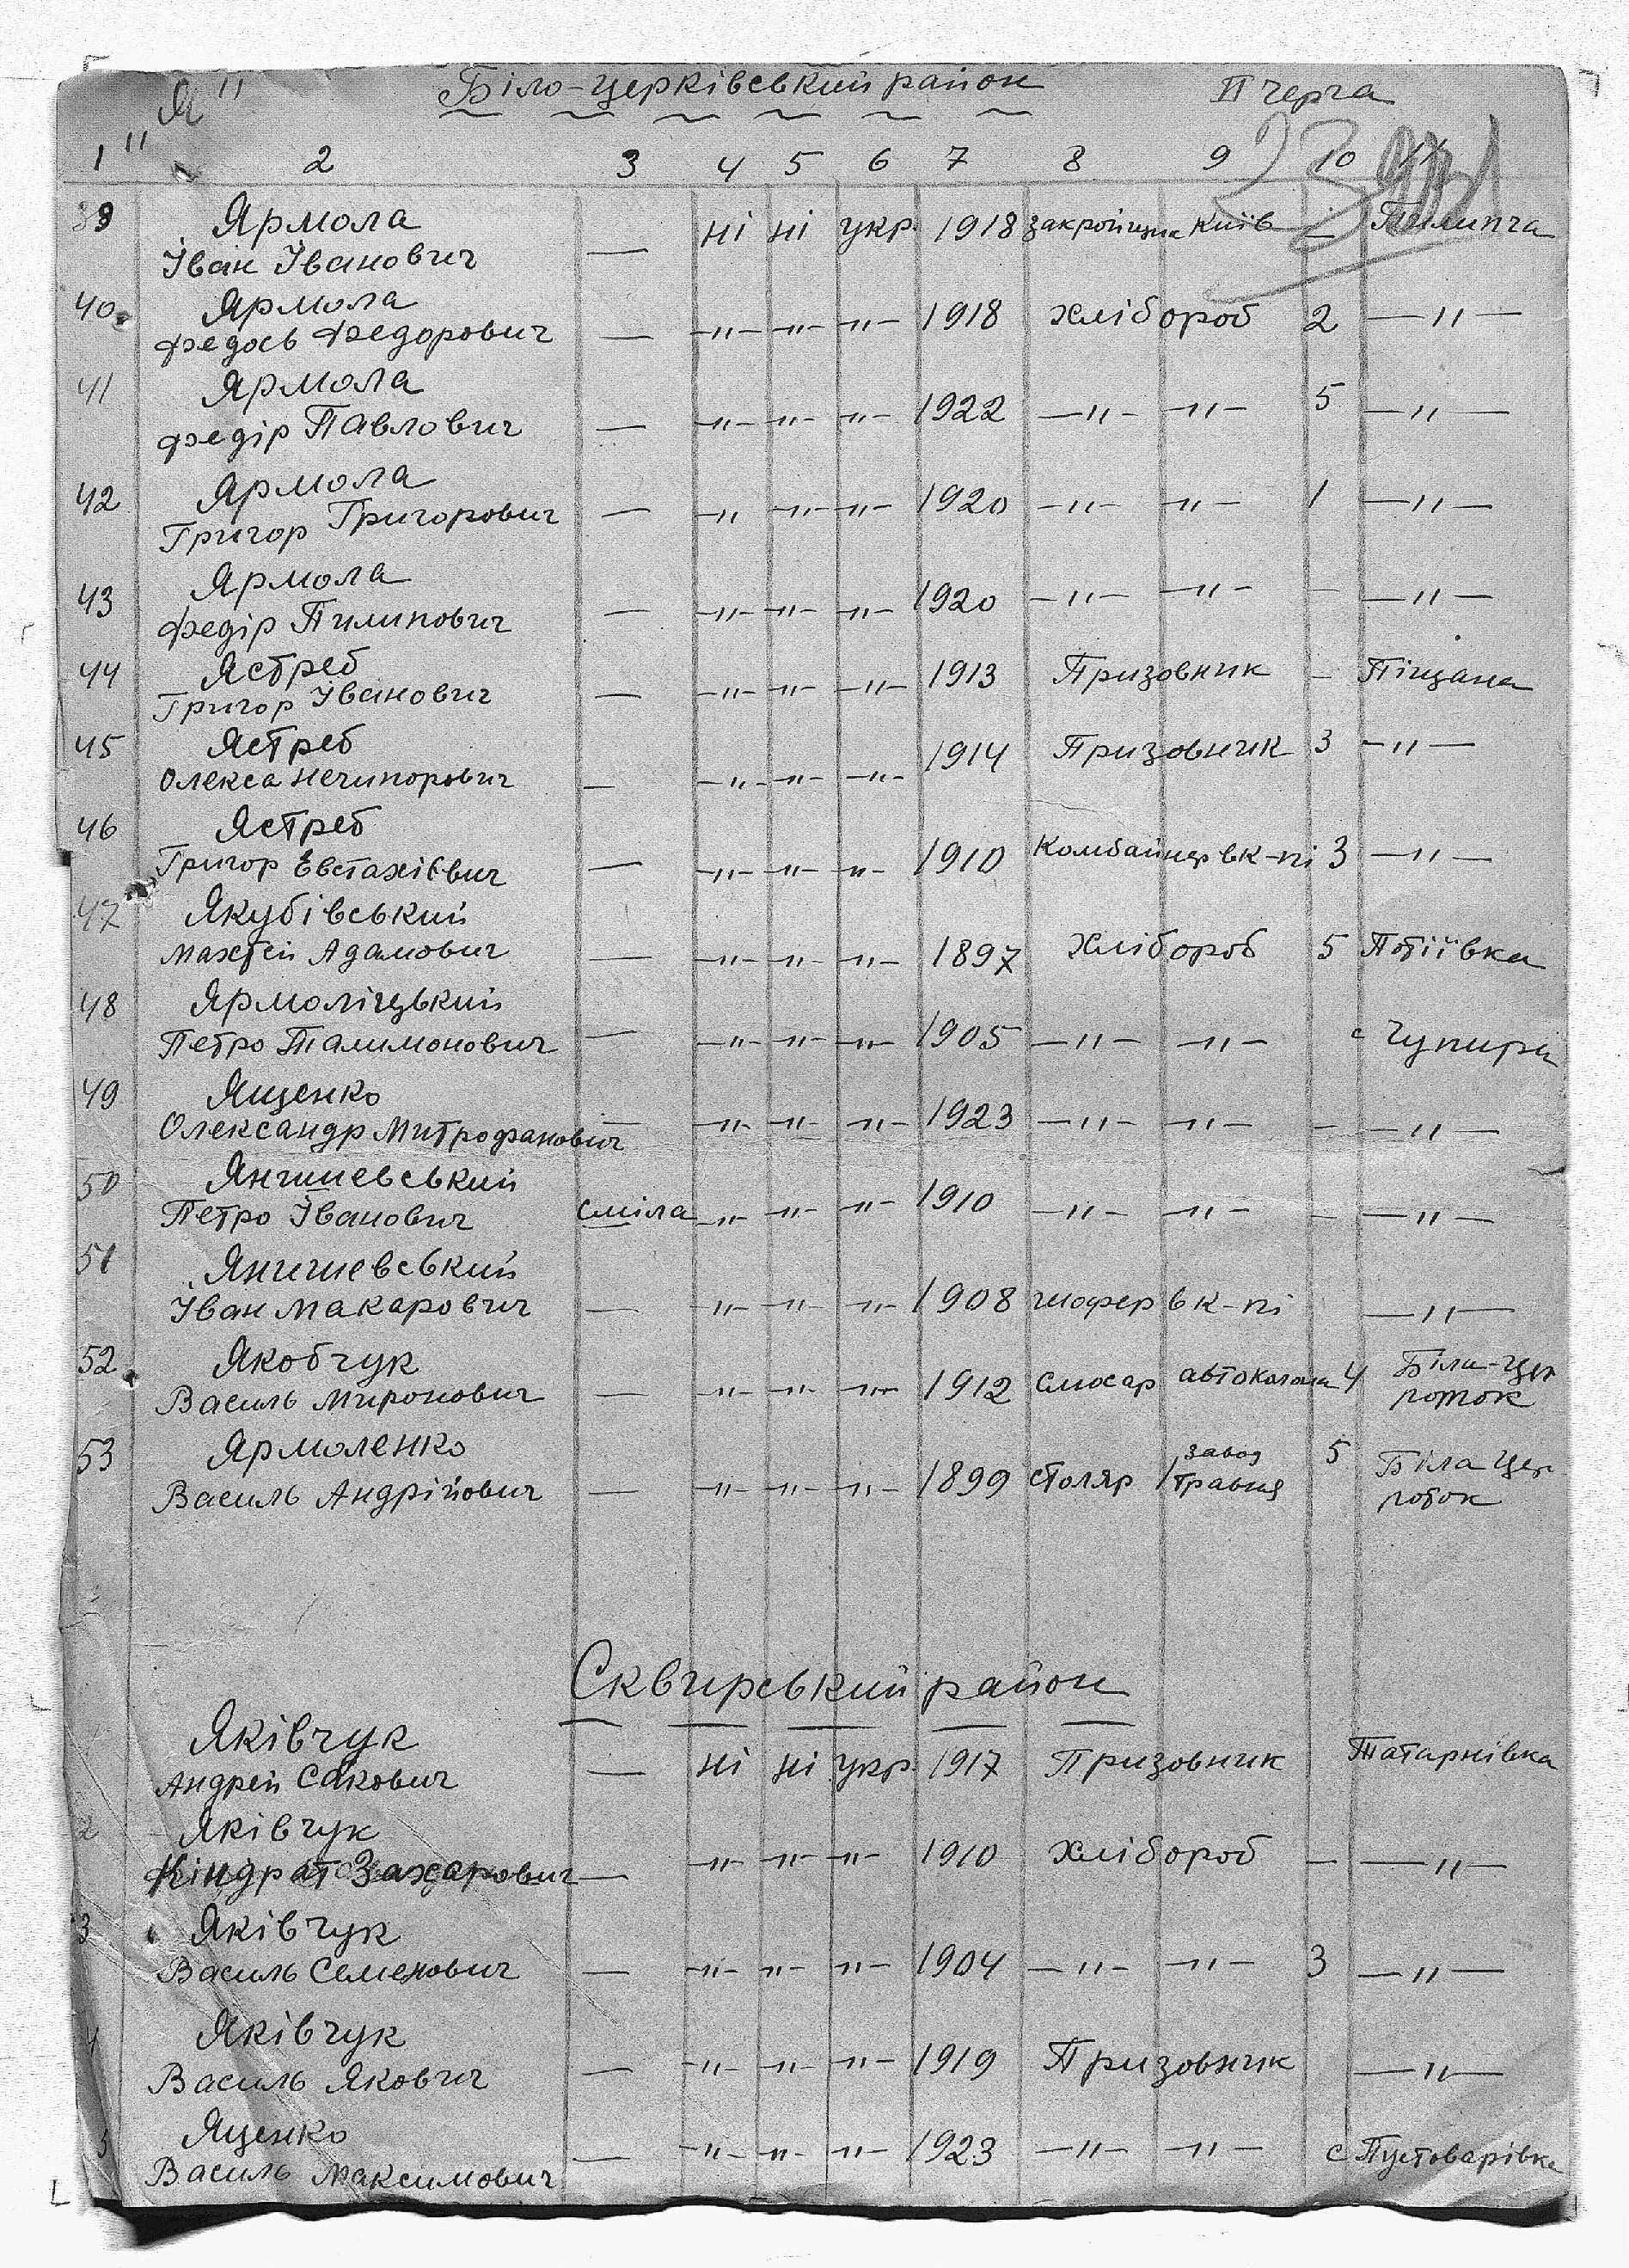 "Я" Біло-церківський район II черга
1 2 3 4 5 6 7 8 9 10 11
39 Ярмола
Іван Іванович — ні ні укр. 1918 Київ — Пилипча
40 Ярмола
Федось Федорович — —"— —"— —"— 1918 хлібороб 2 —"—
41 Ярмола
Федір Павлович — —"— —"— —"— 1922 —"— —"— 5 —"—
42 Ярмола
Григор Григорович — —"— —"— —"— 1920 —"— —"— 1 —"—
43 Ярмола
Федір Пилипович — —"— —"— —"— 1920 —"— —"— — —"—
44 Ястреб
Григор Іванович — —"— —"— —"— 1913 Призовник — Піщана
45 Ястреб
Олекса Нечипорович — —"— —"— —"— 1914 Призовник 3 —"—
46 Ястреб
Григор Евстахієвич — —"— —"— —"— 1910 Комбайнер в к-пі 3 —"—
47 Якубівський
Махтей Адамович — —"— —"— —"— 1897 Хлібороб 5 Потіївка
48 Ярмоліцький
Петро Талимонович — —"— —"— —"— 1905 —"— —"— с Чупира
49 Ященко
Олександр Митрофанович — —"— —"— —"— 1923 —"— —"— — —"—
50 Янчишевський
Петро Іванович Сміла —"— —"— —"— 1910 —"— —"— — —"—
51 Янчишевський
Іван Макарович — —"— —"— —"— 1908 шофер в к-пі —"—
52 Якобчук
Василь Миронович — —"— —"— —"— 1912 слюсар автоколона 4 Біла-Цер
роток
53 Ярмоленко
Василь Андрійович — —"— —"— —"— 1899 столяр завод 1 травня 5 Біла Цер
роток
Сквирський район
Яківчук
Андрей Сакович — ні ні укр. 1917 Призовник Татарнівка
2 Яківчук
Кіндрат Захарович — —"— —"— —"— 1910 Хлібороб — —"—
3 Яківчук
Василь Семенович — —"— —"— —"— 1904 —"— —"— 3 —"—
4 Яківчук
Василь Якович — —"— —"— —"— 1919 Призовник —"—
5 Яценко
Василь Максимович — —"— —"— —"— 1923 —"— —"— с Пустоварівка